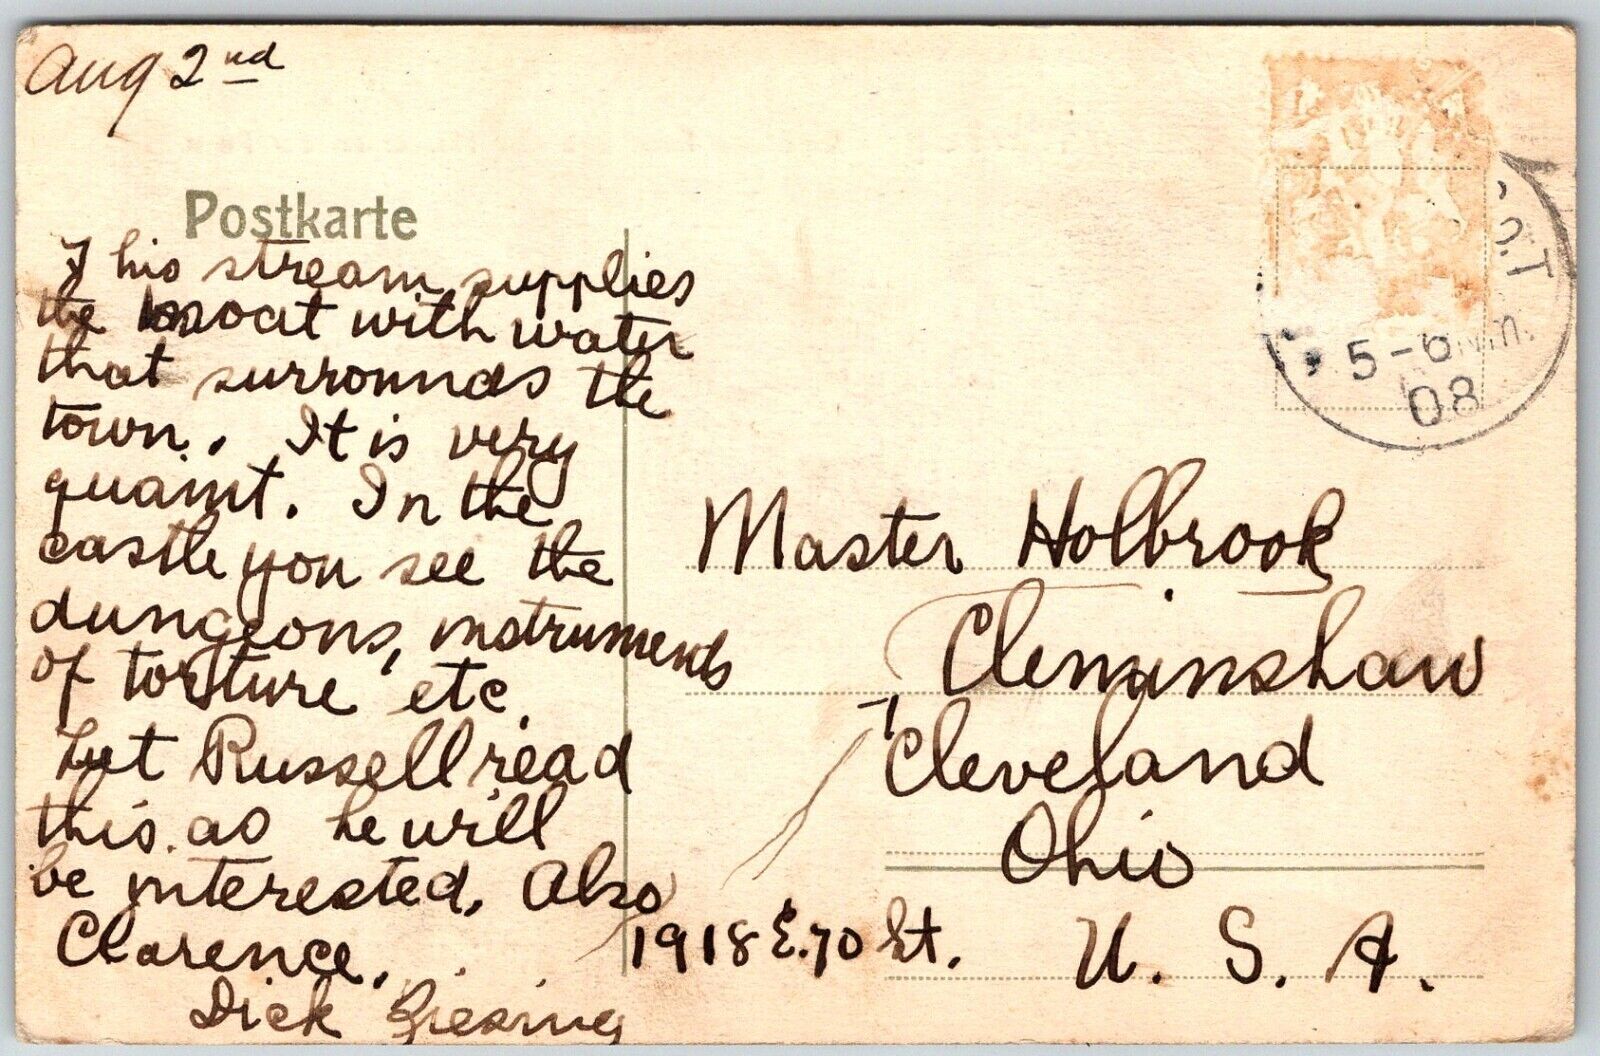 Aug 2nd
Postkarte
This stream supplies
the moat with water
that surrounds the
town. It is very
quaint. In the
castle you see the
dungeons, instruments
of torture etc.
Let Russell read
this as he will
be interested. Also
Clarence.
Dick
Master Holbrook
Cleminshaw
Cleveland
Ohio
1918 E. 70 St.
U. S. A.
5-6
08